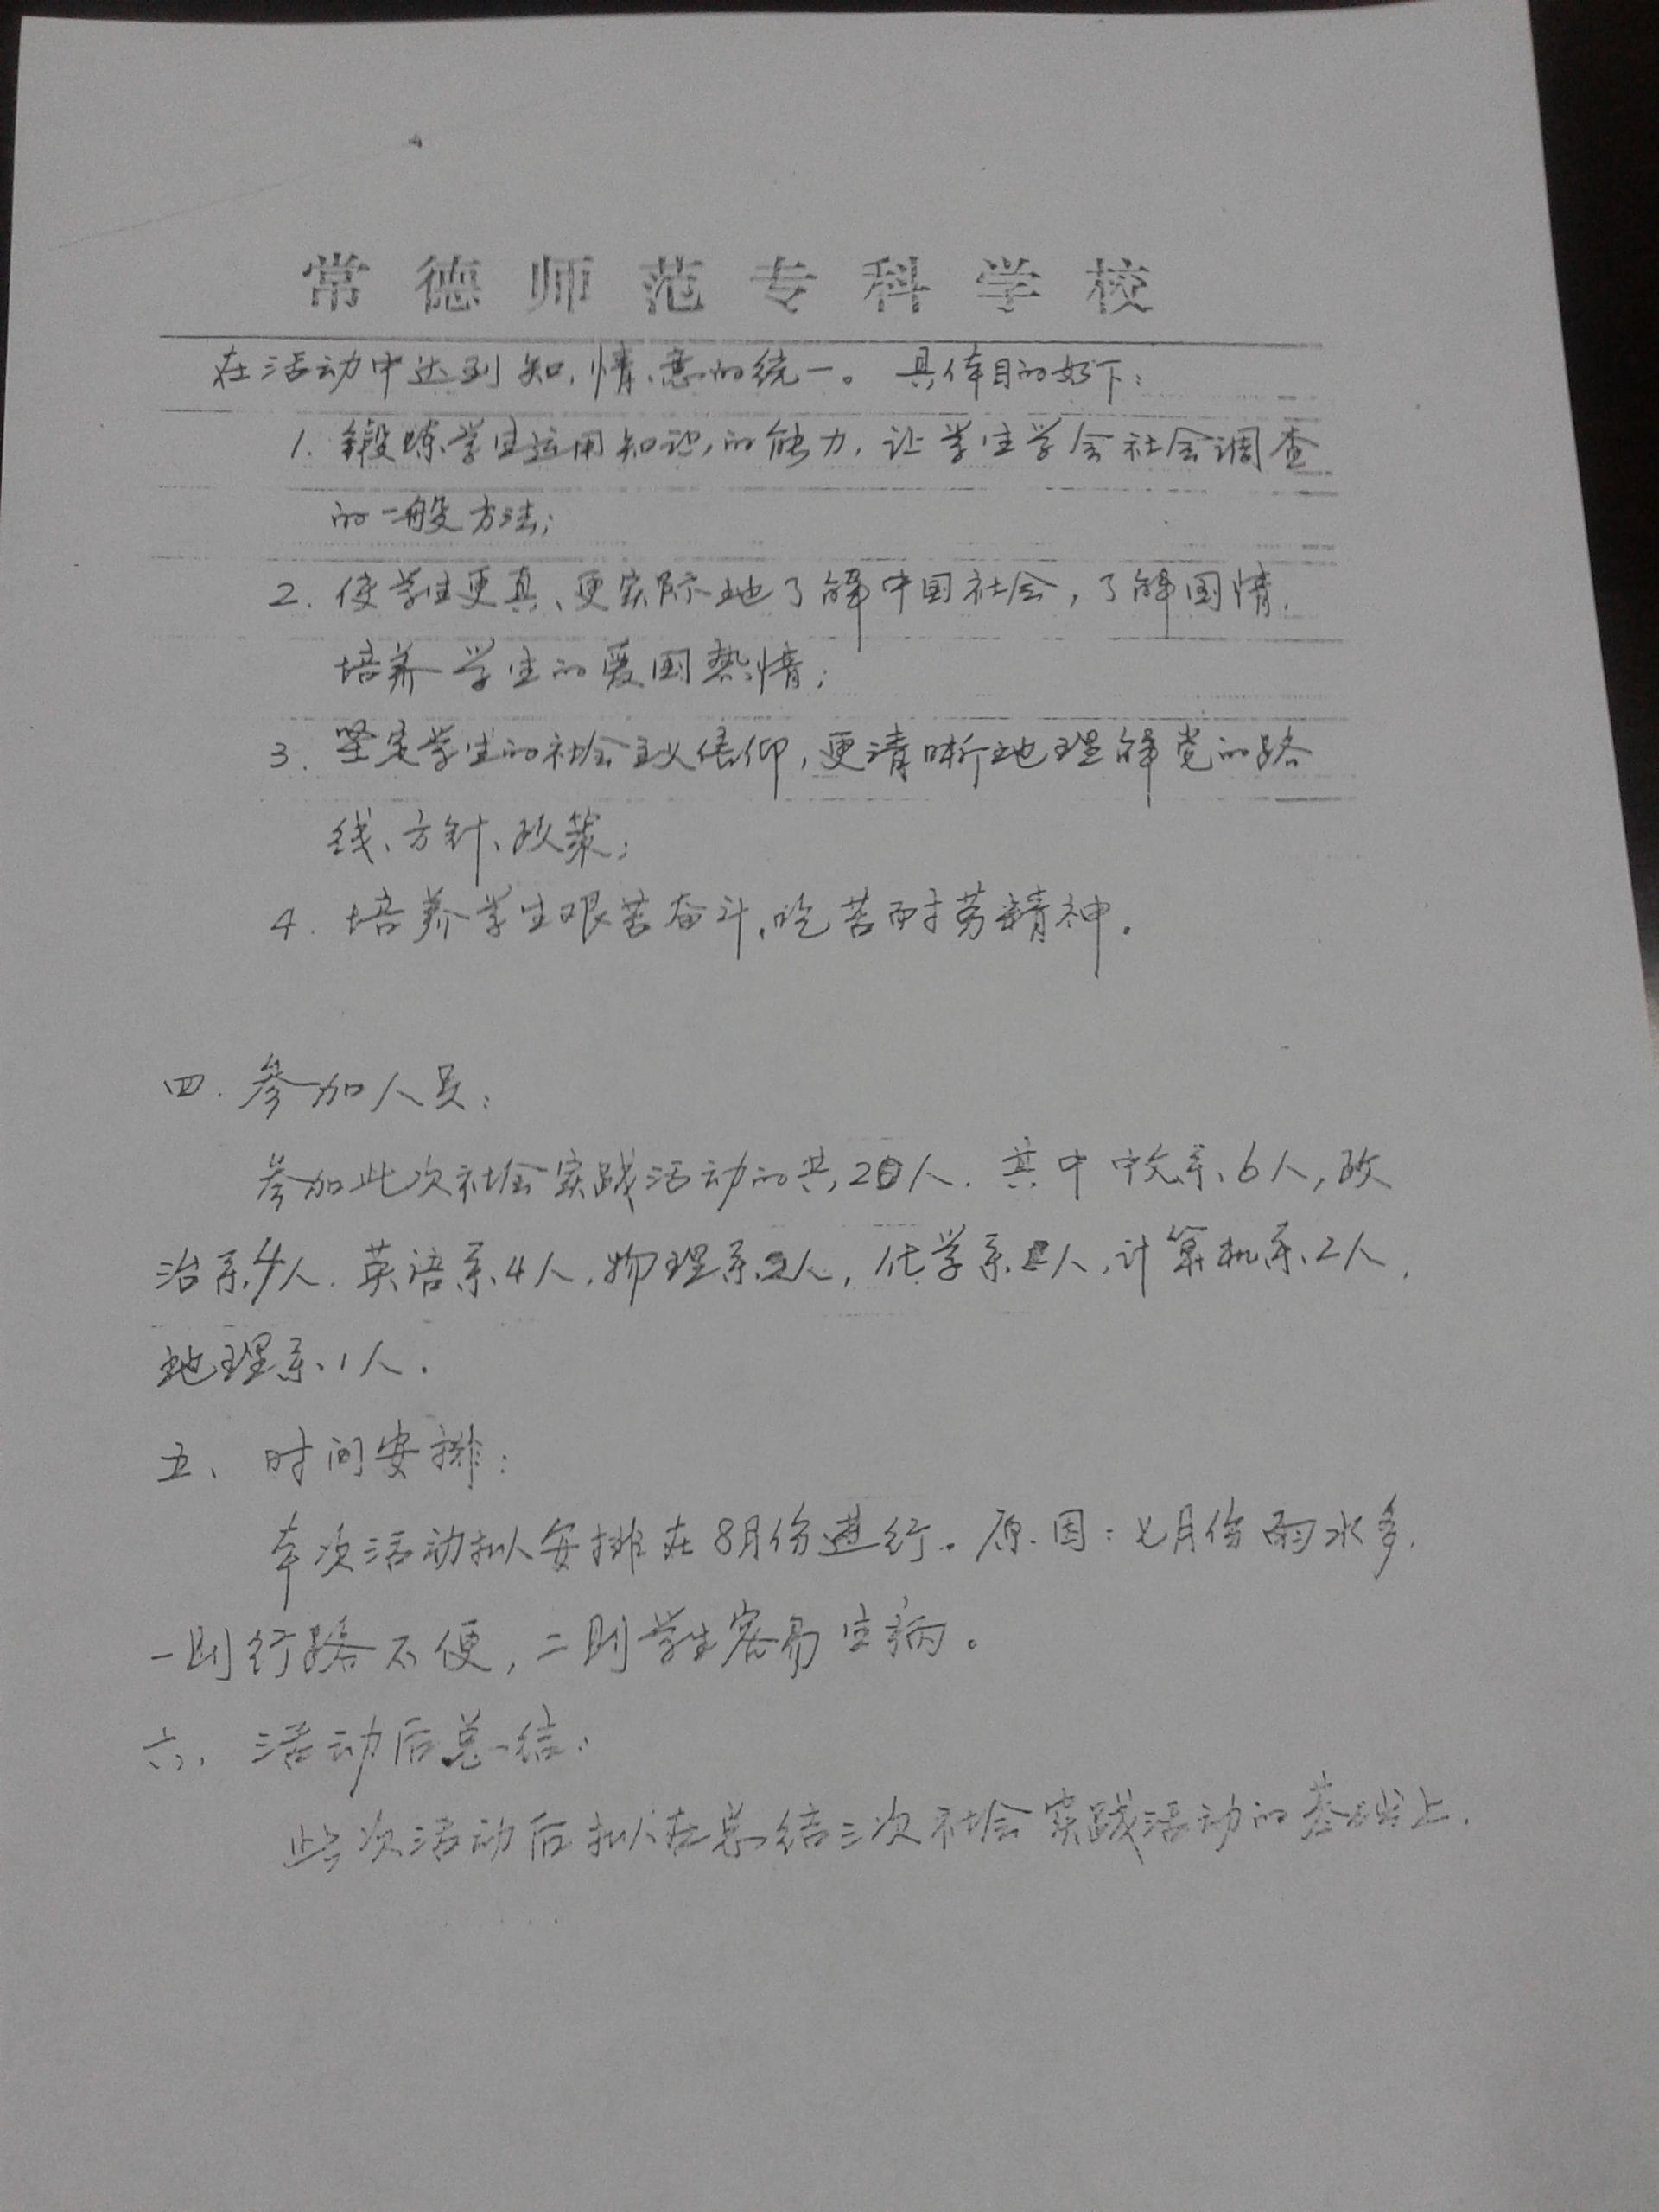 常德师范专科学校
在活动中达到知、情、意的统一。具体目的如下：
1. 锻炼学生运用知识的能力，让学生学会社会调查
的一般方法；
2. 使学生更真、更实际地了解中国社会，了解国情，
培养学生的爱国热情；
3. 坚定学生的社会主义信仰，更清晰地理解党的路
线、方针、政策；
4. 培养学生艰苦奋斗，吃苦耐劳精神。
四. 参加人员：
参加此次社会实践活动的共20人. 其中中文系6人，政
治系4人. 英语系4人，物理系2人，化学系 人，计算机系2人，
地理系1人.
五、时间安排：
本次活动拟安排在8月份进行。原因：七月份雨水多.
一则行路不便，二则学生容易生病。
六、活动后总结：
此次活动后拟在总结三次社会实践活动的基础上，